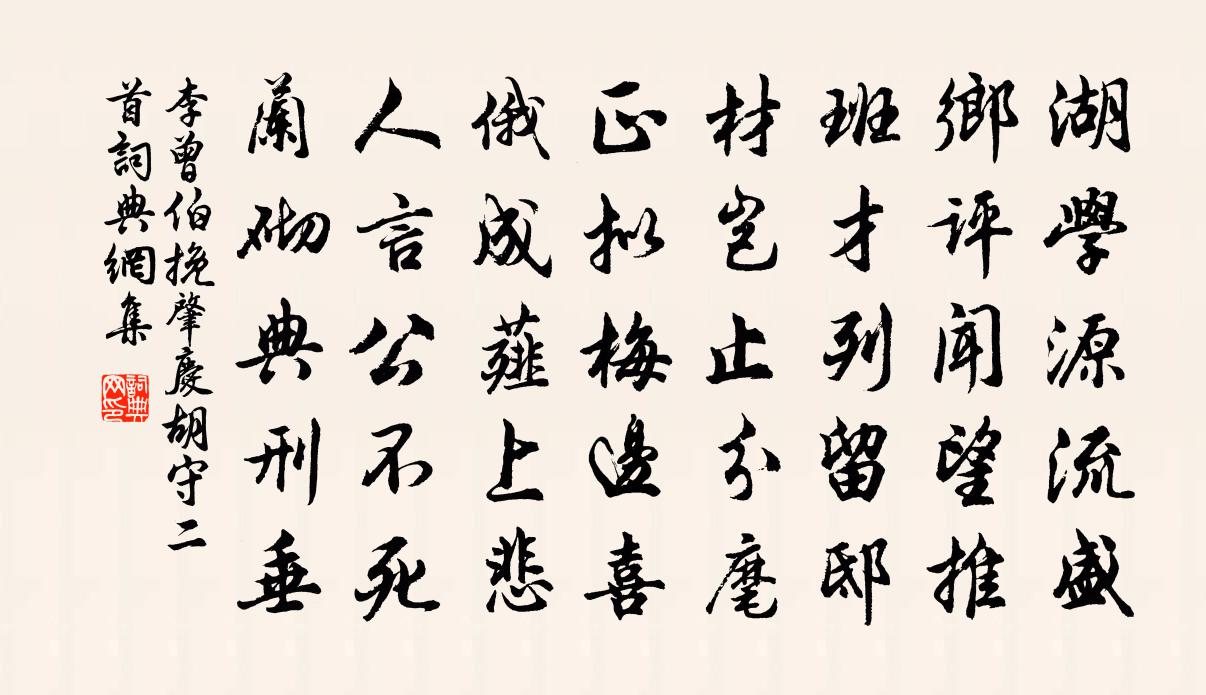 湖學源流盛
鄉評聞望推
班才列留邸
材豈止分麾
正拟梅邊喜
俄成薤上悲
人言公不死
蘭砌典刑垂
李曾伯挽肇慶胡守二
首詞典網集
詞典网印